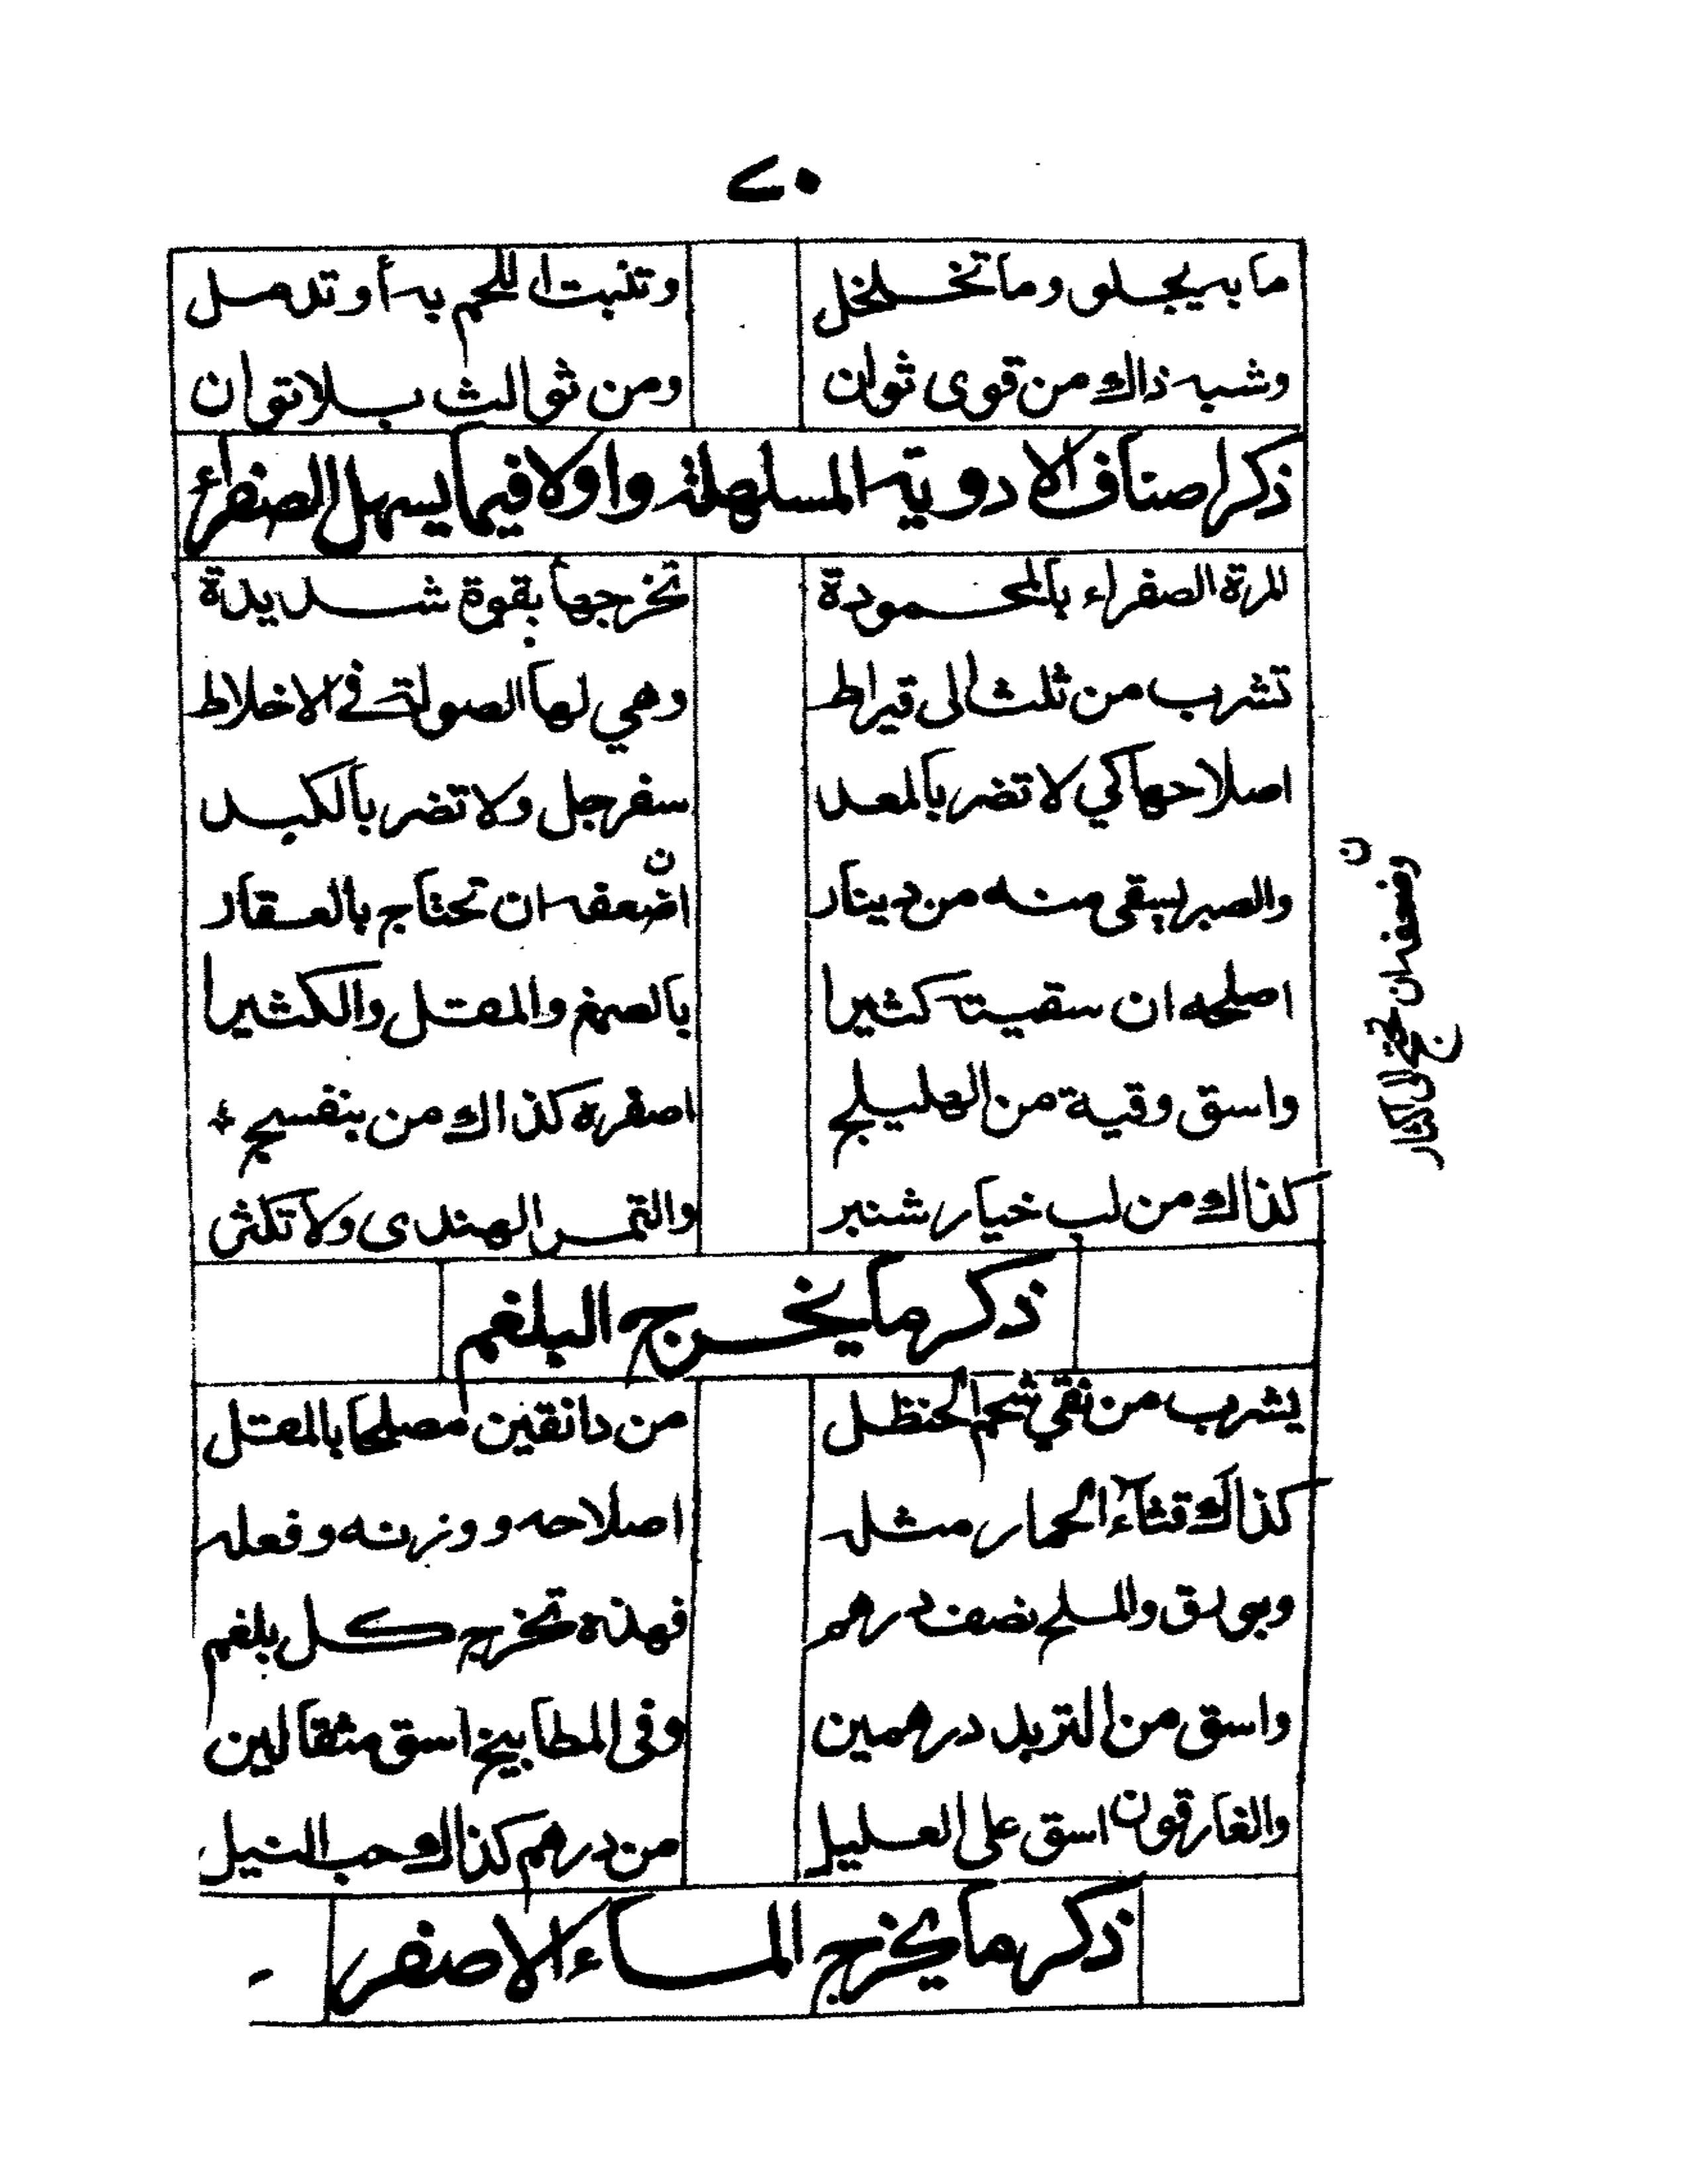 ٧٠
ما به يجلو وما تخلخل وتنبت اللحم به أو تدمل
وشبه ذاك من قوى ثوان ومن ثوالث بلا توان
ذكر اصناف الادوية المسهلة واولا فيما يسهل الصفراء
للمرة الصفراء بالمحمودة تخرجها بقوة شديدة
تشرب من ثلث الى قيراط وهي لها الصولة في الاخلاط
اصلاحها كي لا تضر بالمعد سفرجل ولا تضر بالكبد
والصبر يسقى منه من دينار اضعفه ان تحتاج بالعقار
اصلحه ان سقيته كثيرا بالصمغ والمقل والكثيرا
واسق وقية من الهليلج اصفره كذاك من بنفسج
كذاك من لب خيار شنبر والتمر الهندى ولا تكثر
ذكر ما يخرج البلغم
يشرب من نقي شحم الحنظل من دانقين مصلحا بالمقل
كذاك قثآء الحمار مثله اصلاحه ووزنه وفعله
وبورق والملح نصف درهم فهذه تخرج كل بلغم
واسق من التربد درهمين وفى المطابيخ اسق مثقالين
والغارقون اسق على العليل من درهم كذاك وحب النيل
ذكر ما يخرج الماء الاصفر
ن
وضعفه ان تحتج الى اكثار